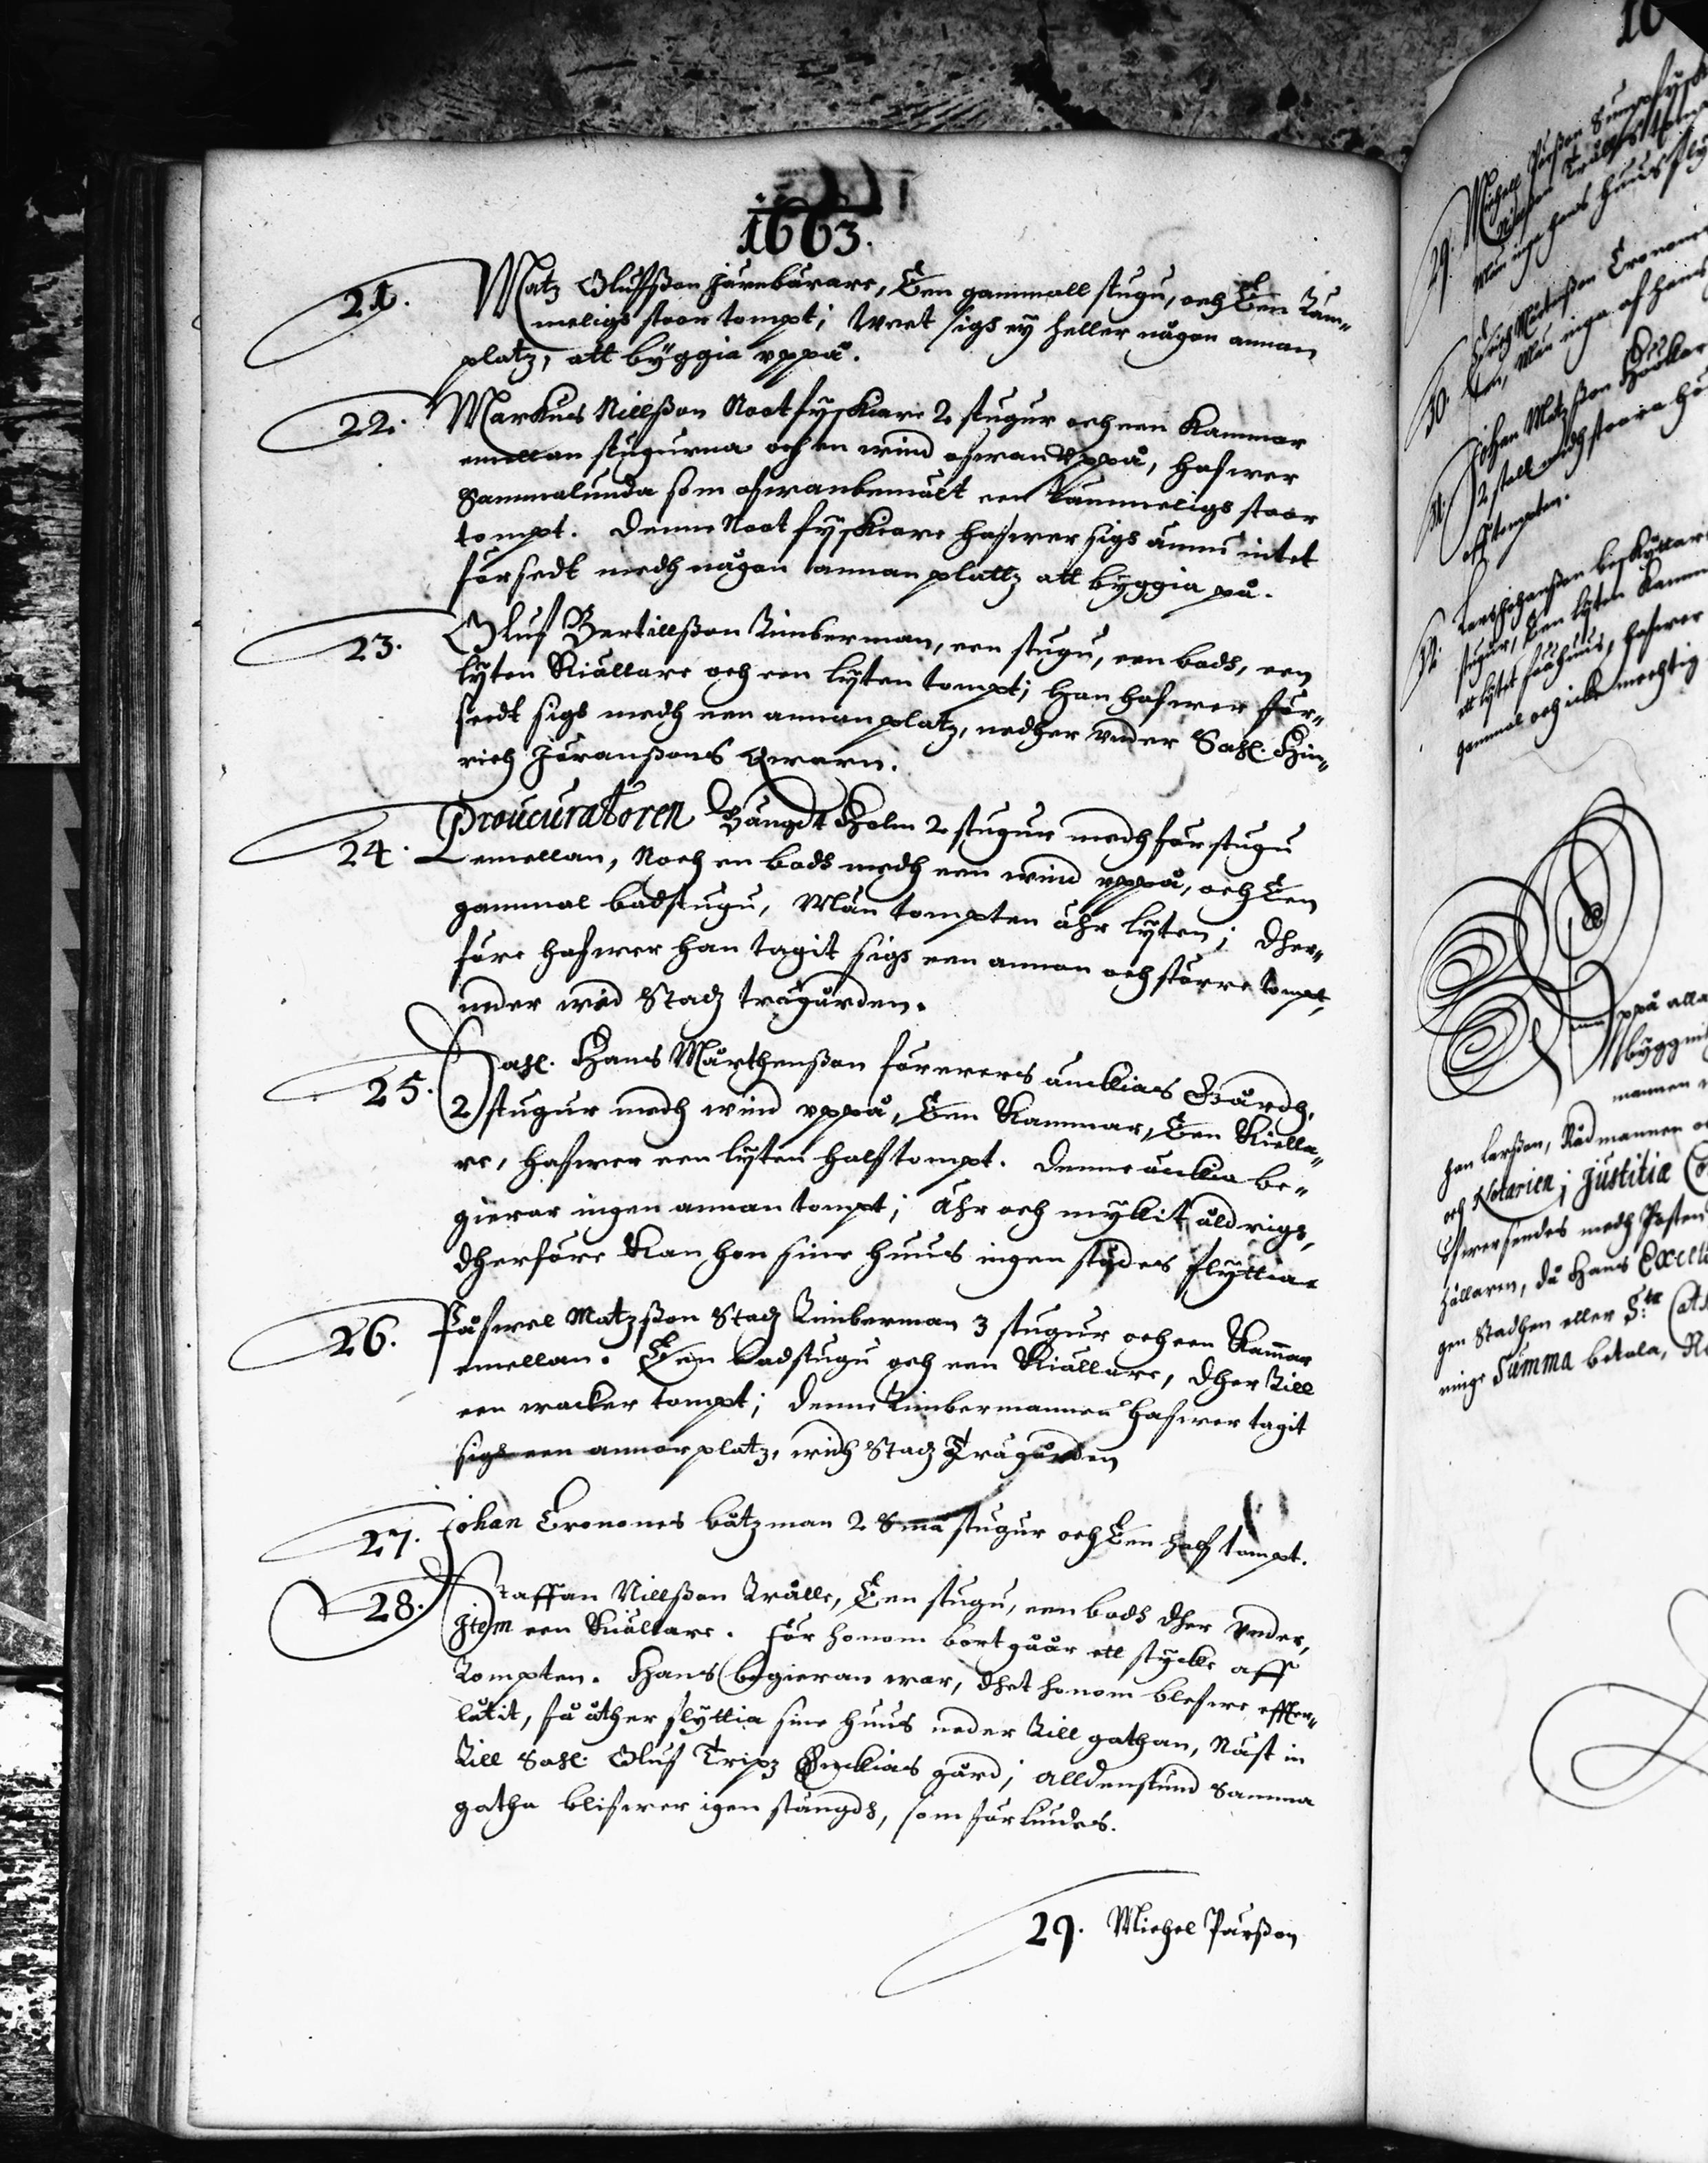 1663.
21. Matz Olufßon Järnbärare, Een gammall stugu, och Een Tam-
meligs stoor tompt; Weet sigh ey heller någon annan
platz, att byggia uppå.
22. Markus Nillßon Nootfyskiare 2 stugur och een Kammar
emellan stugurna och en wind ofwan Uppå, hafwer
Sammalunda som ofwanbemält een Tammeligs stoor
tompt. Denne Nootfyskiare hafwer sigh ännu intet
försedt medh någon annan plattz att byggia på.
23. Oluf Bertillßon Timberman, een stugu, een bodh, een
lyten Kiällare och een lyten tompt; Han hafwer för-
seedt sigh medh een annan platz, nedher under Sahl. Hin-
rich Jöranßons Qwarn.
24. Proucuratoren Bängdt Holm 2 stugur medh förstugu
emellan, Noch en bodh medh een wind uppå, och Een
gammal badstugu, Män tompten ähr lyten; Dher-
före hafwer han tagit sigh een annan och större tompt,
neder wid Stadz trägården.
25. Sahl. Hans Mårthenßon förerers änckias Gårdh,
2 stugur medh wind uppå, Een Kammar, Een Kiella-
re, hafwer een lyten half tompt. Denne änckia be-
gierar ingen annan tompt; Ähr och myckit åldrigh,
dherföre Kan hon sine huus ingen städes flyttia
26. Påfwel Matzßon Stadz Timberman 3 stugur och een Kam̃ar
emellan. Een badstugu och een Kiällare, dher Till
een wacker tompt; Denne Timbermannen hafwer tagit
sigh een annor platz, widh Stadz Trägården
27. Johan Cronones båtzman 2 Små stugur och Een half tompt.
28. Staffan Nillßon Trålle, Een stugu, een bodh dher Under,
Item een Kiällare. För honom bort gåår ett stycke aff
Tompten. Hans begieran war, dhet honom blefwe effter-
låtit, få åther flyttia sine huus neder Till gathan, Näst in
Till Sahl. Oluf Tripz Enckias gård; alldenstund Samma
gatha blifwer igen stängdh, som förkundes.
29. Michel Pärßon
29. Michell Pärßon
Män inga hans huus
30. Erich Mårtenßon Cronones
Johan Matzßon
2 stall medh stoora
aff tompten.
stugur, Een lyten Kamm
ett lytet fäähuus, hafwer
gammal och icke mechtig
uppå alla
byggni
mannen
han Larßon, Rådmannen
och Notarien; Justitiæ
Öfwersendes medh Posten
hållaren, då Hans Excell
gen Stadhen eller
ringe Summa betala,